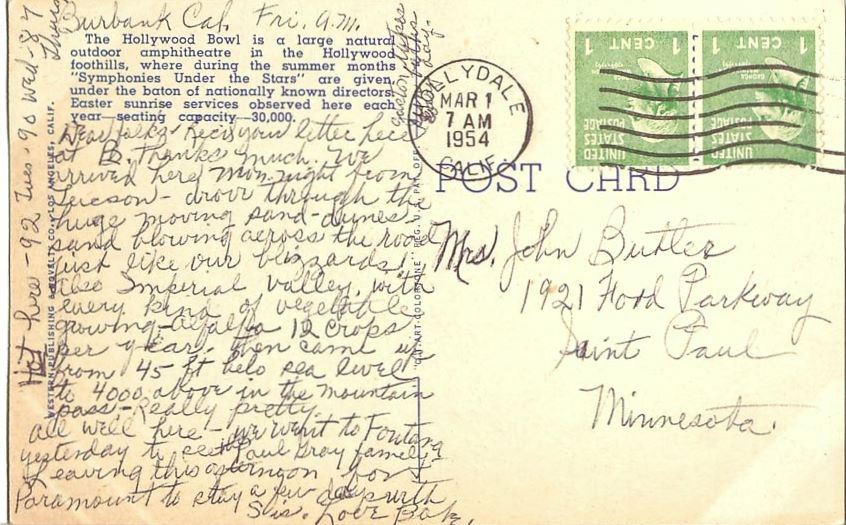 Burbank Cal. Fri. a.m.
The Hollywood Bowl is a large natural
outdoor amphitheatre in the Hollywood
foothills, where during the summer months
"Symphonies Under the Stars" are given,
under the baton of nationally known directors.
Easter sunrise services observed here each
year—seating capacity—30,000.
Dear folks - Rec'd your letter here
at B. Thanks much. We
arrived here Mon. night from
Tucson - drove through the
huge moving sand-dunes,
sand blowing across the road
just like our blizzards!
Also Imperial Valley, with
every kind of vegetable
growing - alfalfa 12 crops
per year, then came up
from 45 ft belo sea level
to 4000 above in the mountain
pass - Really pretty.
all well here - we went to Fontana
yesterday to see the Paul Gray family
Leaving this afternoon for
Paramount to stay a few days with
Sis. Love
Hot here - 92 Tues - 90 Wed - 87
Thurs
WESTERN PUBLISHING & NOVELTY CO., LOS ANGELES, CALIF.
"C.T. ART-COLORTONE" REG. U.S. PAT. OFF.
HOLLYDALE
MAR 1
7 AM
1954
CALIF.
1 CENT 1
UNITED
STATES
POSTAGE
1 CENT 1
UNITED
STATES
POSTAGE
POST CARD
Mrs. John Butler
1921 Ford Parkway
Saint Paul
Minnesota.